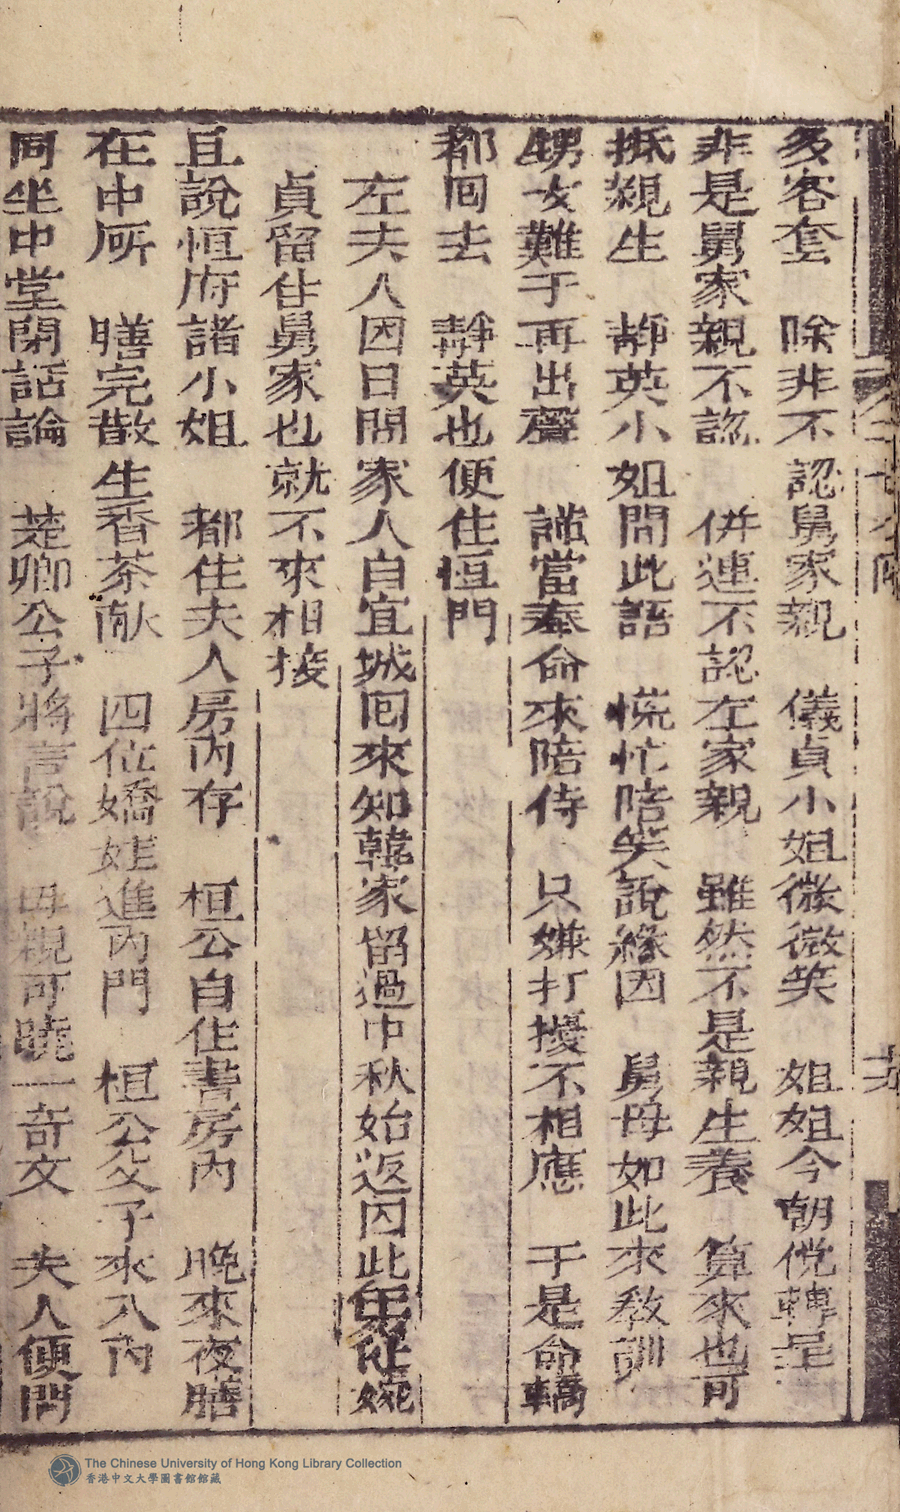 多客套　除非不認舅家親　儀貞小姐微微笑　姐姐今朝倪轉是
非是舅家親不認　併連不認左家親　雖然不是親生養　算來也可
抵親生　靜英小姐聞此語　慌忙陪笑說緣因　舅母如此來教訓
甥女難于再出聲　謹當奉命來陪侍　只嫌打擾不相應　于是命轎
都回去　靜英也便住恒門
左夫人因日間家人自宜城回來知韓家留過中秋始返因此從婉
貞留住舅家也就不來相接
且說恒府諸小姐　都住夫人房內存　桓公自住書房內　晚來夜膳
在中所　膳完散坐香茶献　四位嬌娃進內門　桓公父子來入內
同坐中堂閑話論　楚卿公子將言說　母親可曉一奇文　夫人便問
The Chinese University of Hong Kong Library Collection
香港中文大學圖書館館藏